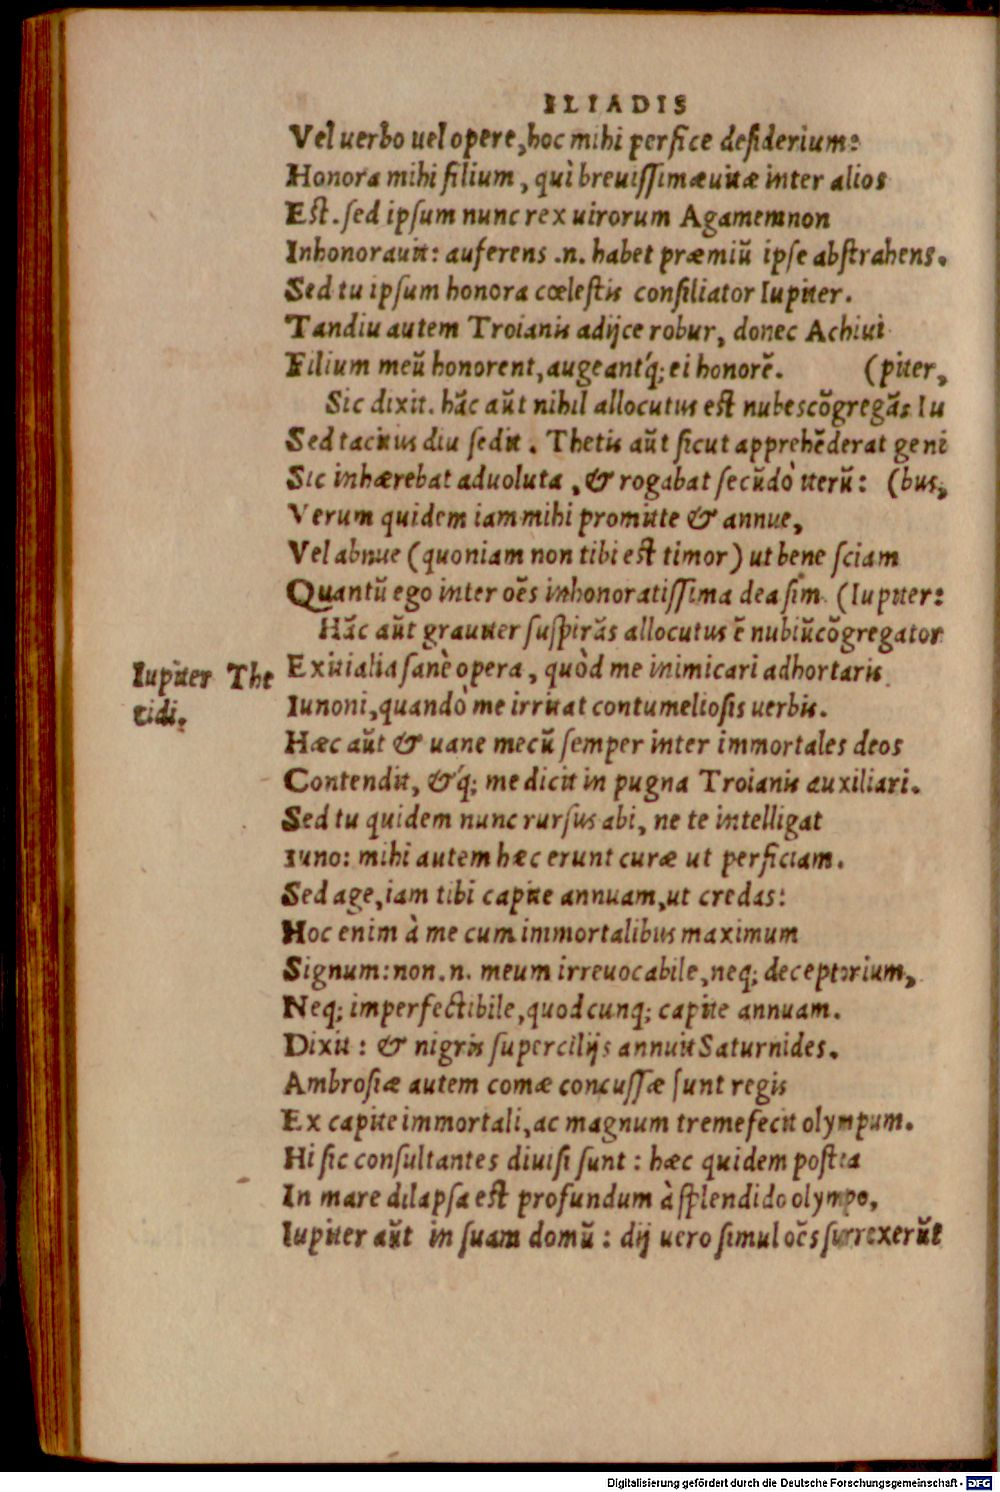 ILIADIS
Vel uerbo uel opere, hoc mihi perfice desiderium:
Honora mihi filium, quì breuissimæ uitæ inter alios
Est. sed ipsum nunc rex uirorum Agamemnon
Inhonorauit: auferens .n. habet præmiũ ipse abstrahens.
Sed tu ipsum honora cœlestis consiliator Iupiter.
Tandiu autem Troianis adijce robur, donec Achiui
Filium meũ honorent, augeantq́; ei honorẽ. (piter,
Sic dixit. hãc aũt nihil allocutus est nubescõgregãs Iu
Sed tacitus diu sedit. Thetis aũt sicut apprehẽderat geni
Sic inhærebat aduoluta, & rogabat secũdò iterũ: (bus,
Verum quidem iam mihi promitte & annue,
Vel abnue (quoniam non tibi est timor) ut bene sciam
Quantũ ego inter oẽs inhonoratissima dea sim. (Iupiter:
Hãc aũt grauiter suspirãs allocutus ẽ nubiũcõgregator
Iupiter The
tidi.
Exitialia sanè opera, quòd me inimicari adhortaris
Iunoni, quandò me irritat contumeliosis uerbis.
Hæc aũt & uane mecũ semper inter immortales deos
Contendit, &q́; me dicit in pugna Troianis auxiliari.
Sed tu quidem nunc rursus abi, ne te intelligat
Iuno: mihi autem hæc erunt curæ ut perficiam.
Sed age, iam tibi capite annuam, ut credas:
Hoc enim à me cum immortalibus maximum
Signum: non .n. meum irreuocabile, neq; deceptorium,
Neq; imperfectibile, quodcunq; capite annuam.
Dixit: & nigris supercilijs annuit Saturnides.
Ambrosiæ autem comæ concussæ sunt regis
Ex capite immortali, ac magnum tremefecit olympum.
Hi sic consultantes diuisi sunt: hæc quidem postea
In mare dilapsa est profundum à splendido olympo,
Iupiter aũt in suam domũ: dij uero simul oẽs surrexerũt
Digitalisierung gefördert durch die Deutsche Forschungsgemeinschaft - DFG